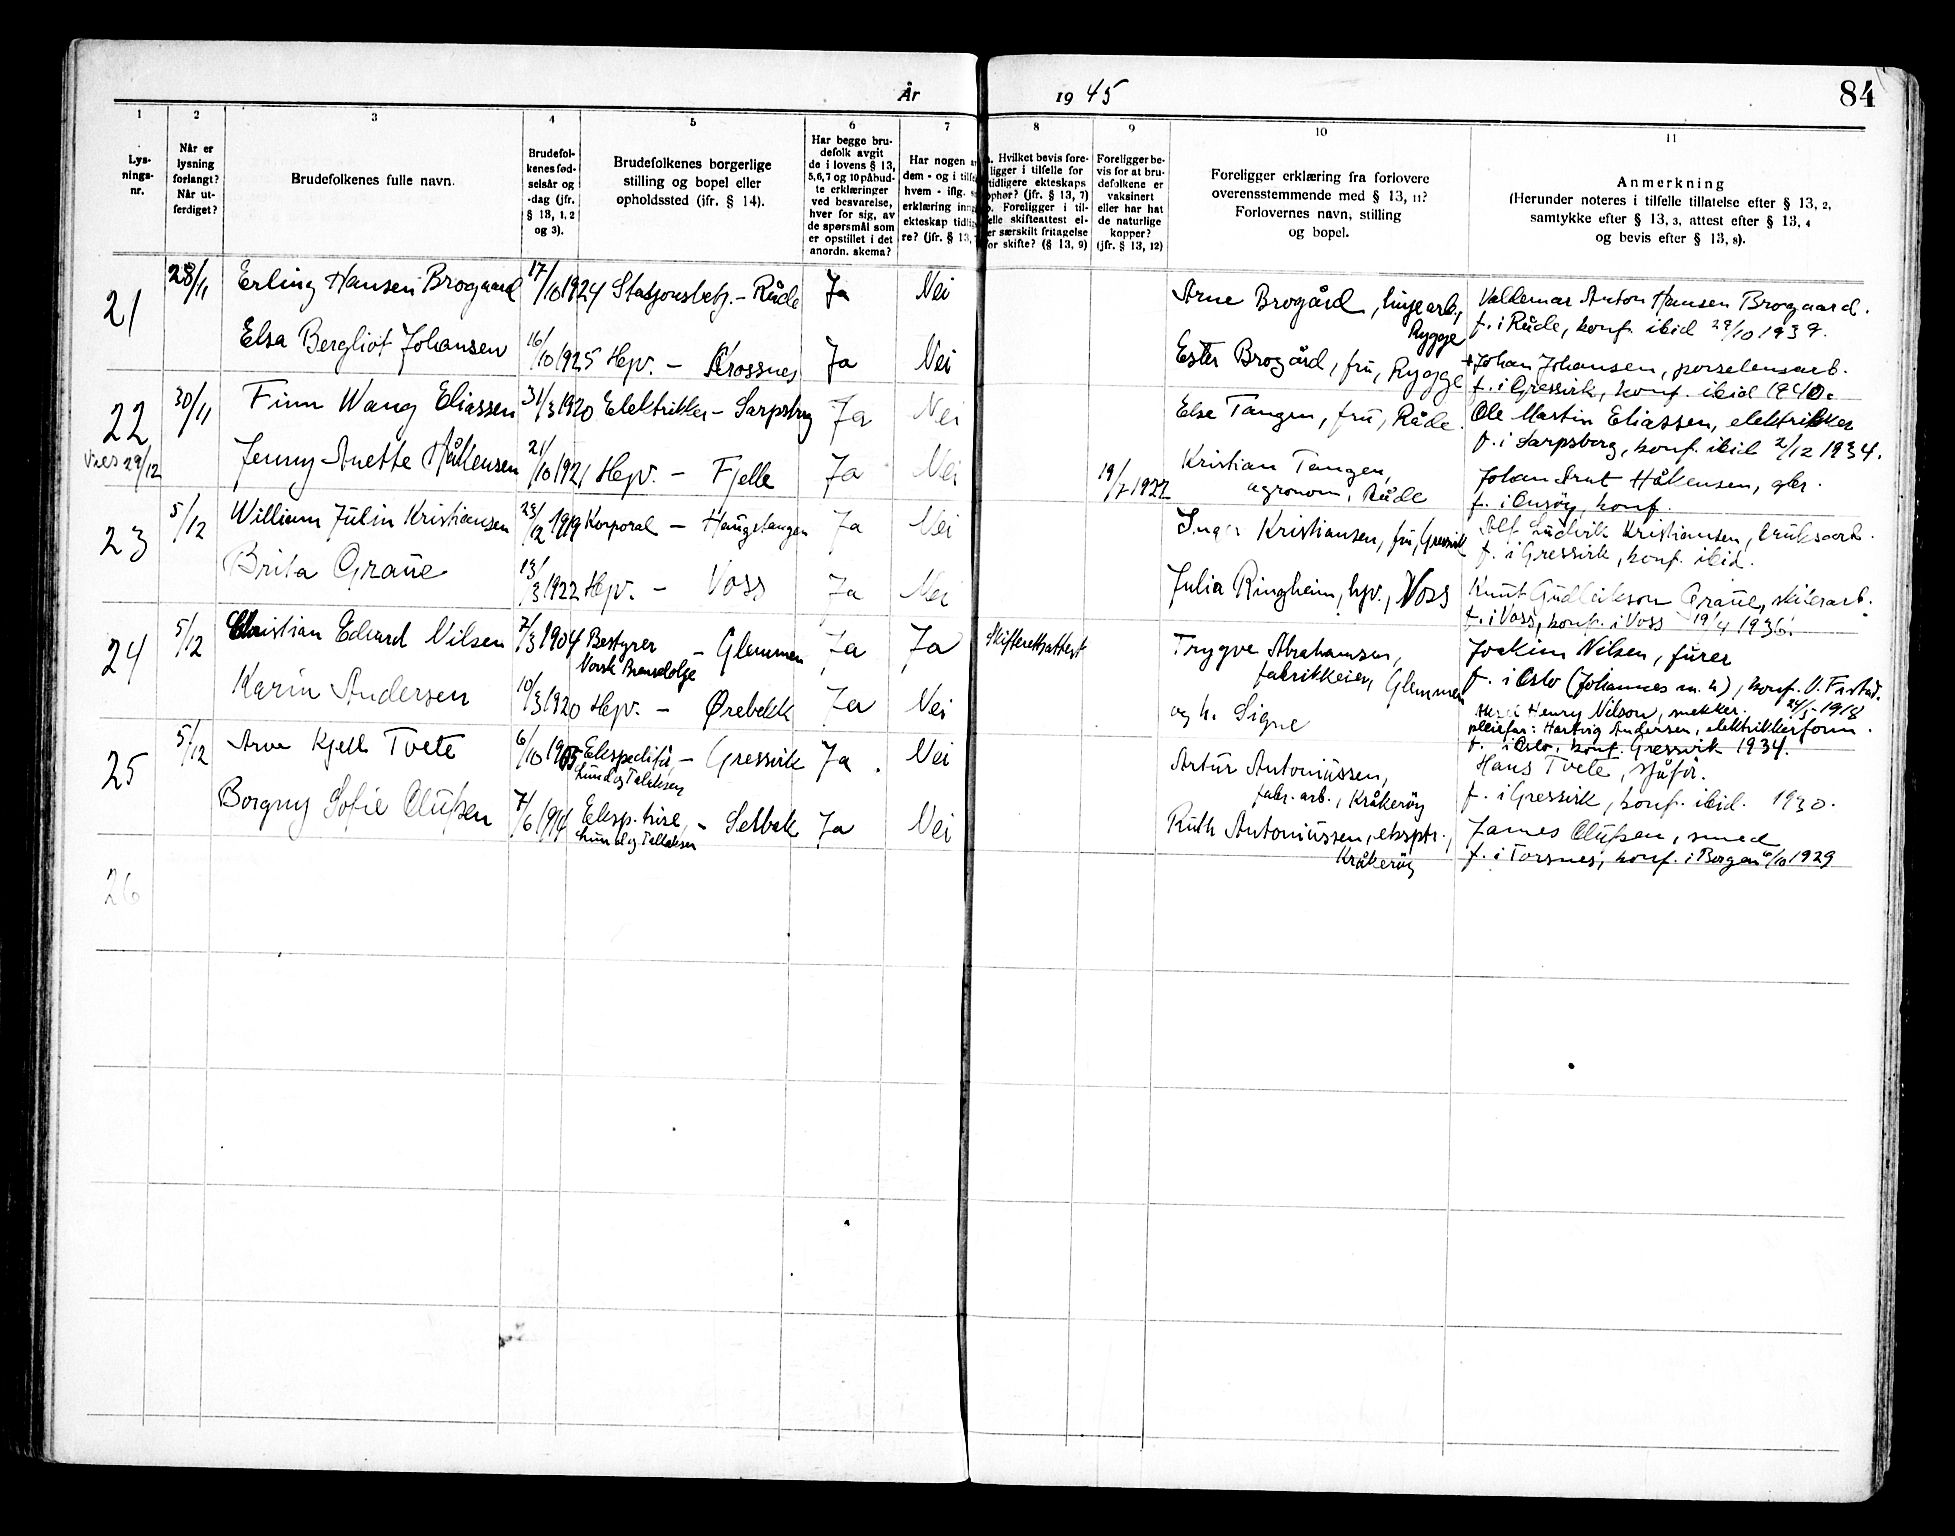 År 1945
84
1 2 3 4 5 6 7 8 9 10 11
Lys-
nings-
nr.
Når er
lysning
forlangt?
Når ut-
ferdiget?
Brudefolkenes fulle navn.
Brudefol-
kenes fød-
selsår og
-dag (jfr.
§ 13, 1, 2
og 3).
Brudefolkenes borgerlige
stilling og bopel eller
opholdssted (jfr. § 14).
Har begge bru-
defolk avgit
de i lovens § 13,
5,6,7 og 10 påbud-
te erklæringer
ved besvarelse,
hver for sig, av
de spørsmål som
er opstillet i det
anordn. skema?
Har nogen a
dem - og i tilf
hvem - iflg.
erklæring inng
ekteskap tidlig
re? (jfr. § 13,
a. Hvilket bevis fore-
ligger i tilfelle for
tidligere ekteskaps
ophør? (jfr. § 13, 7)
b. Foreligger i til-
felle skifteattest el-
er særskilt fritagelse
for skifte? (§ 13, 9)
Foreligger be-
vis for at bru-
defolkene er
vaksinert
eller har hat
de naturlige
kopper?
(jfr. § 13, 12)
Foreligger erklæring fra forlovere
overensstemmende med § 13, 11?
Forlovernes navn, stilling
og bopel.
Anmerkning
(Herunder noteres i tilfelle tillatelse efter § 13, 2,
samtykke efter § 13, 3, attest efter § 13, 4
og bevis efter § 13, 8).
21 28/11 Erling Hansen Brogaard 17/10 1924 Stasjonsbetj. - Råde Ja Nei Arne Brogård, linjearb., Rygge Valdemar Anton Hansen Brogaard.
f. i Råde, konf. ibid 29/10 1939.
Elsa Bergliot Johansen 16/10 1925 Hjv. - Krossnes Ja Nei Ester Brogård, fru, Rygge Johan Johansen, porselensarb.
f. i Gressvik, konf. ibid 1940.
22 30/11 Finn Wang Eliassen 31/3 1920 Elektriker - Sarpsborg Ja Nei Else Tangen, fru, Råde. Ole Martin Eliassen, elektriker
f. i Sarpsborg, konf. ibid 2/12 1934.
Vies 29/12 Jenny Anette Håkensen 21/10 1921 Hjv. - Fjelle Ja Nei 19/7 1922 Kristian Tangen,
agronom, Råde Johan Håkensen,
f. i Onsøy, konf.
23 5/12 William Julin Kristiansen 23/12 1919 Korporal - Haugstangen Ja Nei Kristiansen, fru, Gressvik Alf Ludvik Kristiansen, bruksarb.
f. i Gressvik, konf. ibid.
Brita Graue 13/3 1922 Hjv. - Voss Ja Nei Julia Ringheim, hjv., Voss Knut Gudleikson Graue,
f. i Voss, konf. i Voss 19/4 1936.
24 5/12 Christian Edvard Nilsen 7/3 1904 Bestyrer - Glemmen Ja Ja Skifterettsattest Trygve Abrahamsen,
fabrikkeier, Glemmen Joakim Nilsen, furer
f. i Oslo (Johannes m. h), konf. 24/5 1918
Norsk
Karin Andersen 10/3 1920 Hjv. - Ørebekk Ja Nei og h. Signe Henry Nilson, snekker.
pleiefar: Hartvig Andersen, elektrikkerform.
f. i Oslo, konf. Gressvik 1934.
25 5/12 Arve Kjell Tvete 6/10 1915 Ekspeditør - Gressvik Ja. Nei Artur Antoniussen,
fabr. arb., Kråkerøy Hans Tvete, sjåfør.
f. i Gressvik, konf. ibid. 1930.
Lund og Tallaksen
Borgny Sofie Olufsen 7/6 1914 Eksp.trise, - Selbak Ja Nei Ruth Antoniussen, eksptr.,
Kråkerøy James Olufsen, smed
f. i Torsnes, konf. i Borgen 6/10 1929
Lund og Tallaksen
26